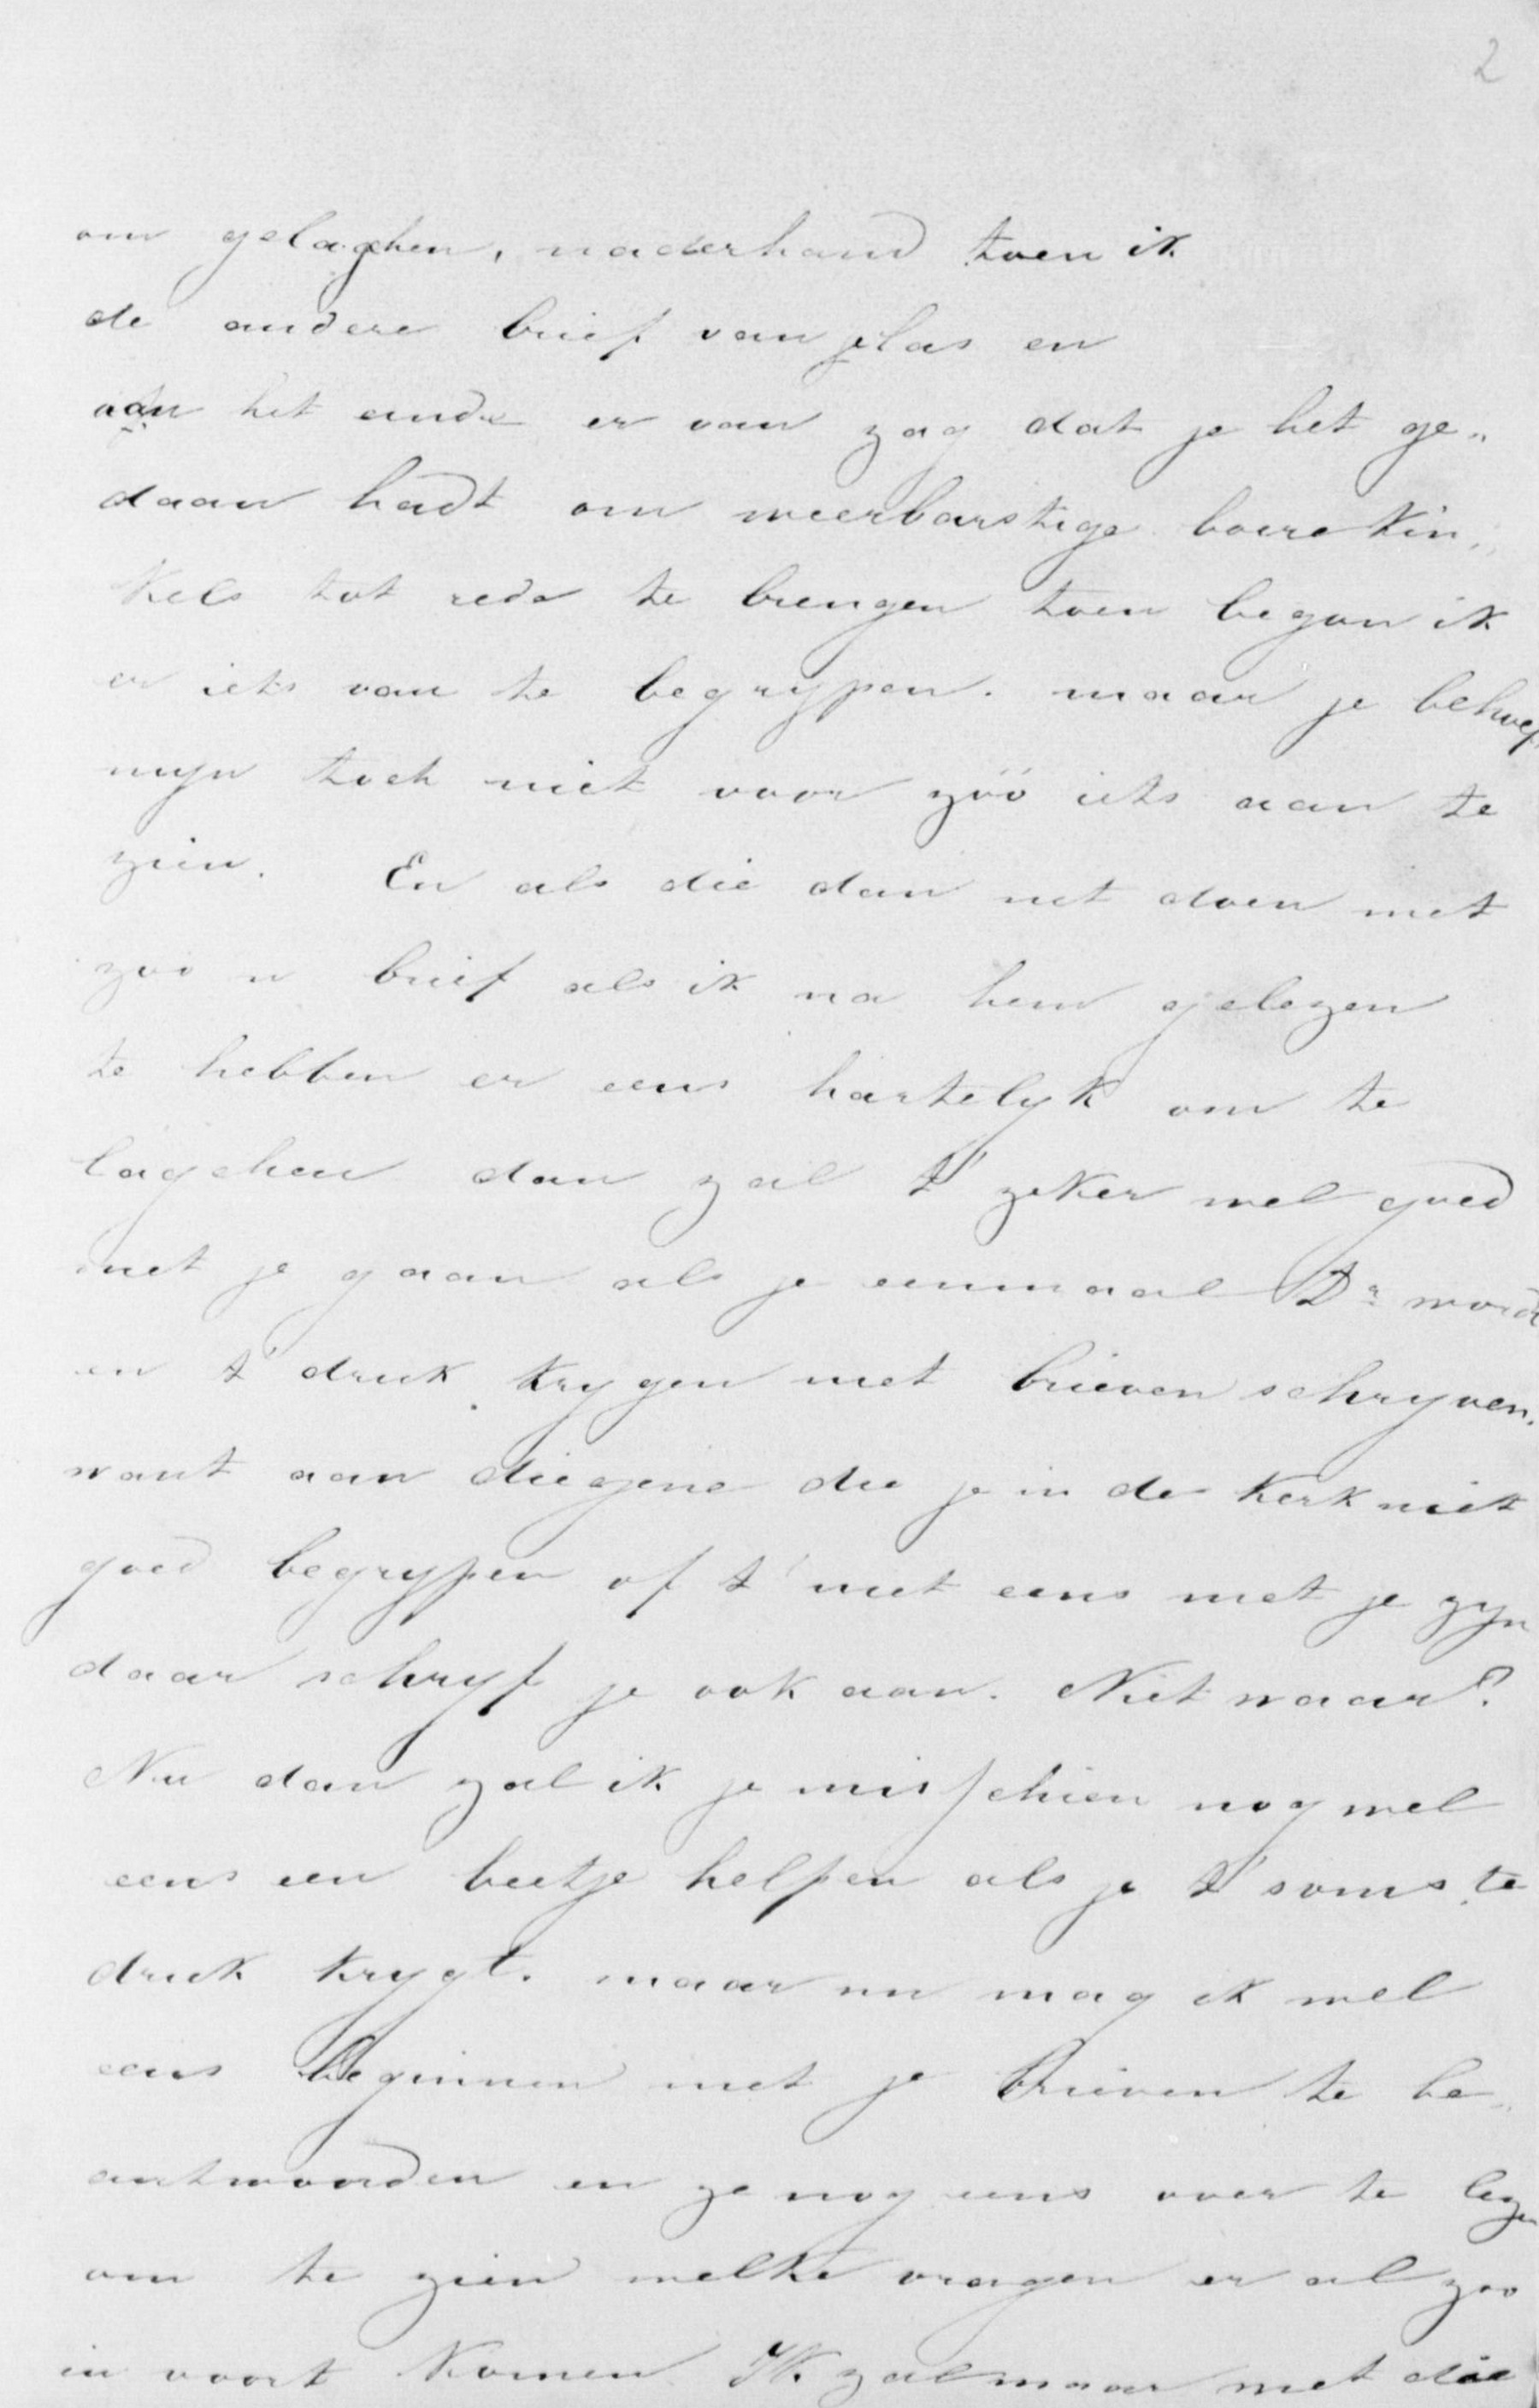 2
om gelagchen, naderhand toen ik
de andere brief van je las en
aan het einde er van zag dat je het ge„
daan hadt om weerbarstige boere kin„
kels tot rede te brengen toen begon ik
er iets van te begrypen. maar je behoef
myn toch niet voor zóó iets aan te
zien. En als die dan net doen met
zoo n brief als ik na hem gelezen
te hebben er eens hartelyk om te
lagchen dan zal t' zeker wel goed
met je gaan als je eenmaal Dr wordt
en t' druk krygen met brieven schryven.
want aan diegene die je in de kerk niet
goed begrypen of t' niet eens met je zyn
daar schryf je ook aan. Niet waar?
Nu dan zal ik je misschien nog wel
eens een beetje helpen als je t' soms te
druk krygt. maar nu mag ik wel
eens beginnen met je brieven te be„
antwoorden en ze nog eens over te lezen
om te zien welke vragen er al zoo
in voort komen Ik zal maar met die